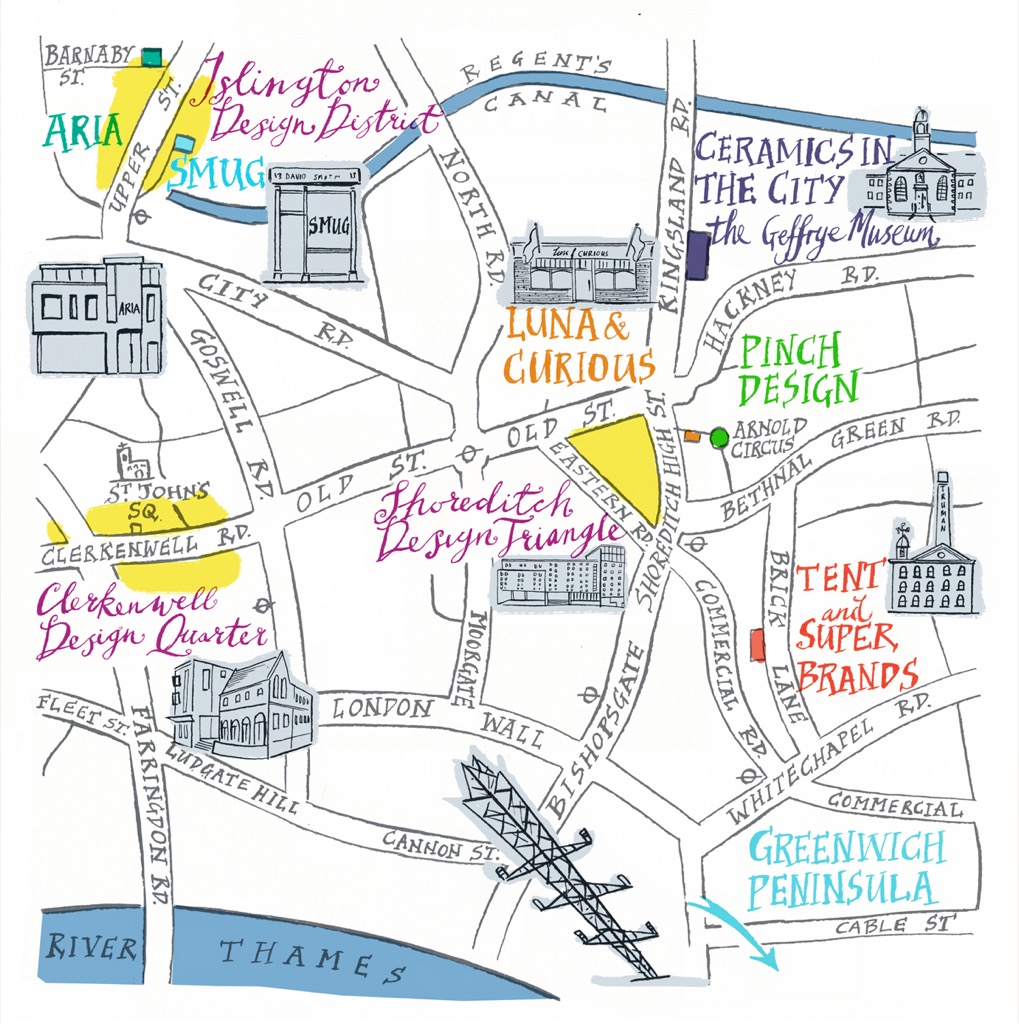 BARNABY
ST.
UPPER ST.
ARIA
Islington
Design District
SMUG
SMUG
ARIA
REGENT'S
CANAL
NORTH RD.
KINGSLAND RD.
CERAMICS IN
THE CITY
the Geffrye Museum
HACKNEY RD.
CITY RD.
GOSWELL RD.
& CURIOUS
LUNA &
CURIOUS
PINCH
DESIGN
ARNOLD
CIRCUS
OLD ST.
OLD ST.
EASTERN RD.
SHOREDITCH HIGH ST.
BETHNAL GREEN RD.
ST JOHN'S
SQ.
CLERKENWELL RD.
Shoreditch
Design Triangle
Clerkenwell
Design Quarter
TRUMAN
BRICK LANE
TENT
and
SUPER
BRANDS
COMMERCIAL RD.
MOORGATE
LONDON WALL
BISHOPSGATE
FLEET ST.
FARRINGDON RD.
LUDGATE HILL
CANNON ST.
WHITECHAPEL RD.
COMMERCIAL
GREENWICH
PENINSULA
CABLE ST
RIVER THAMES